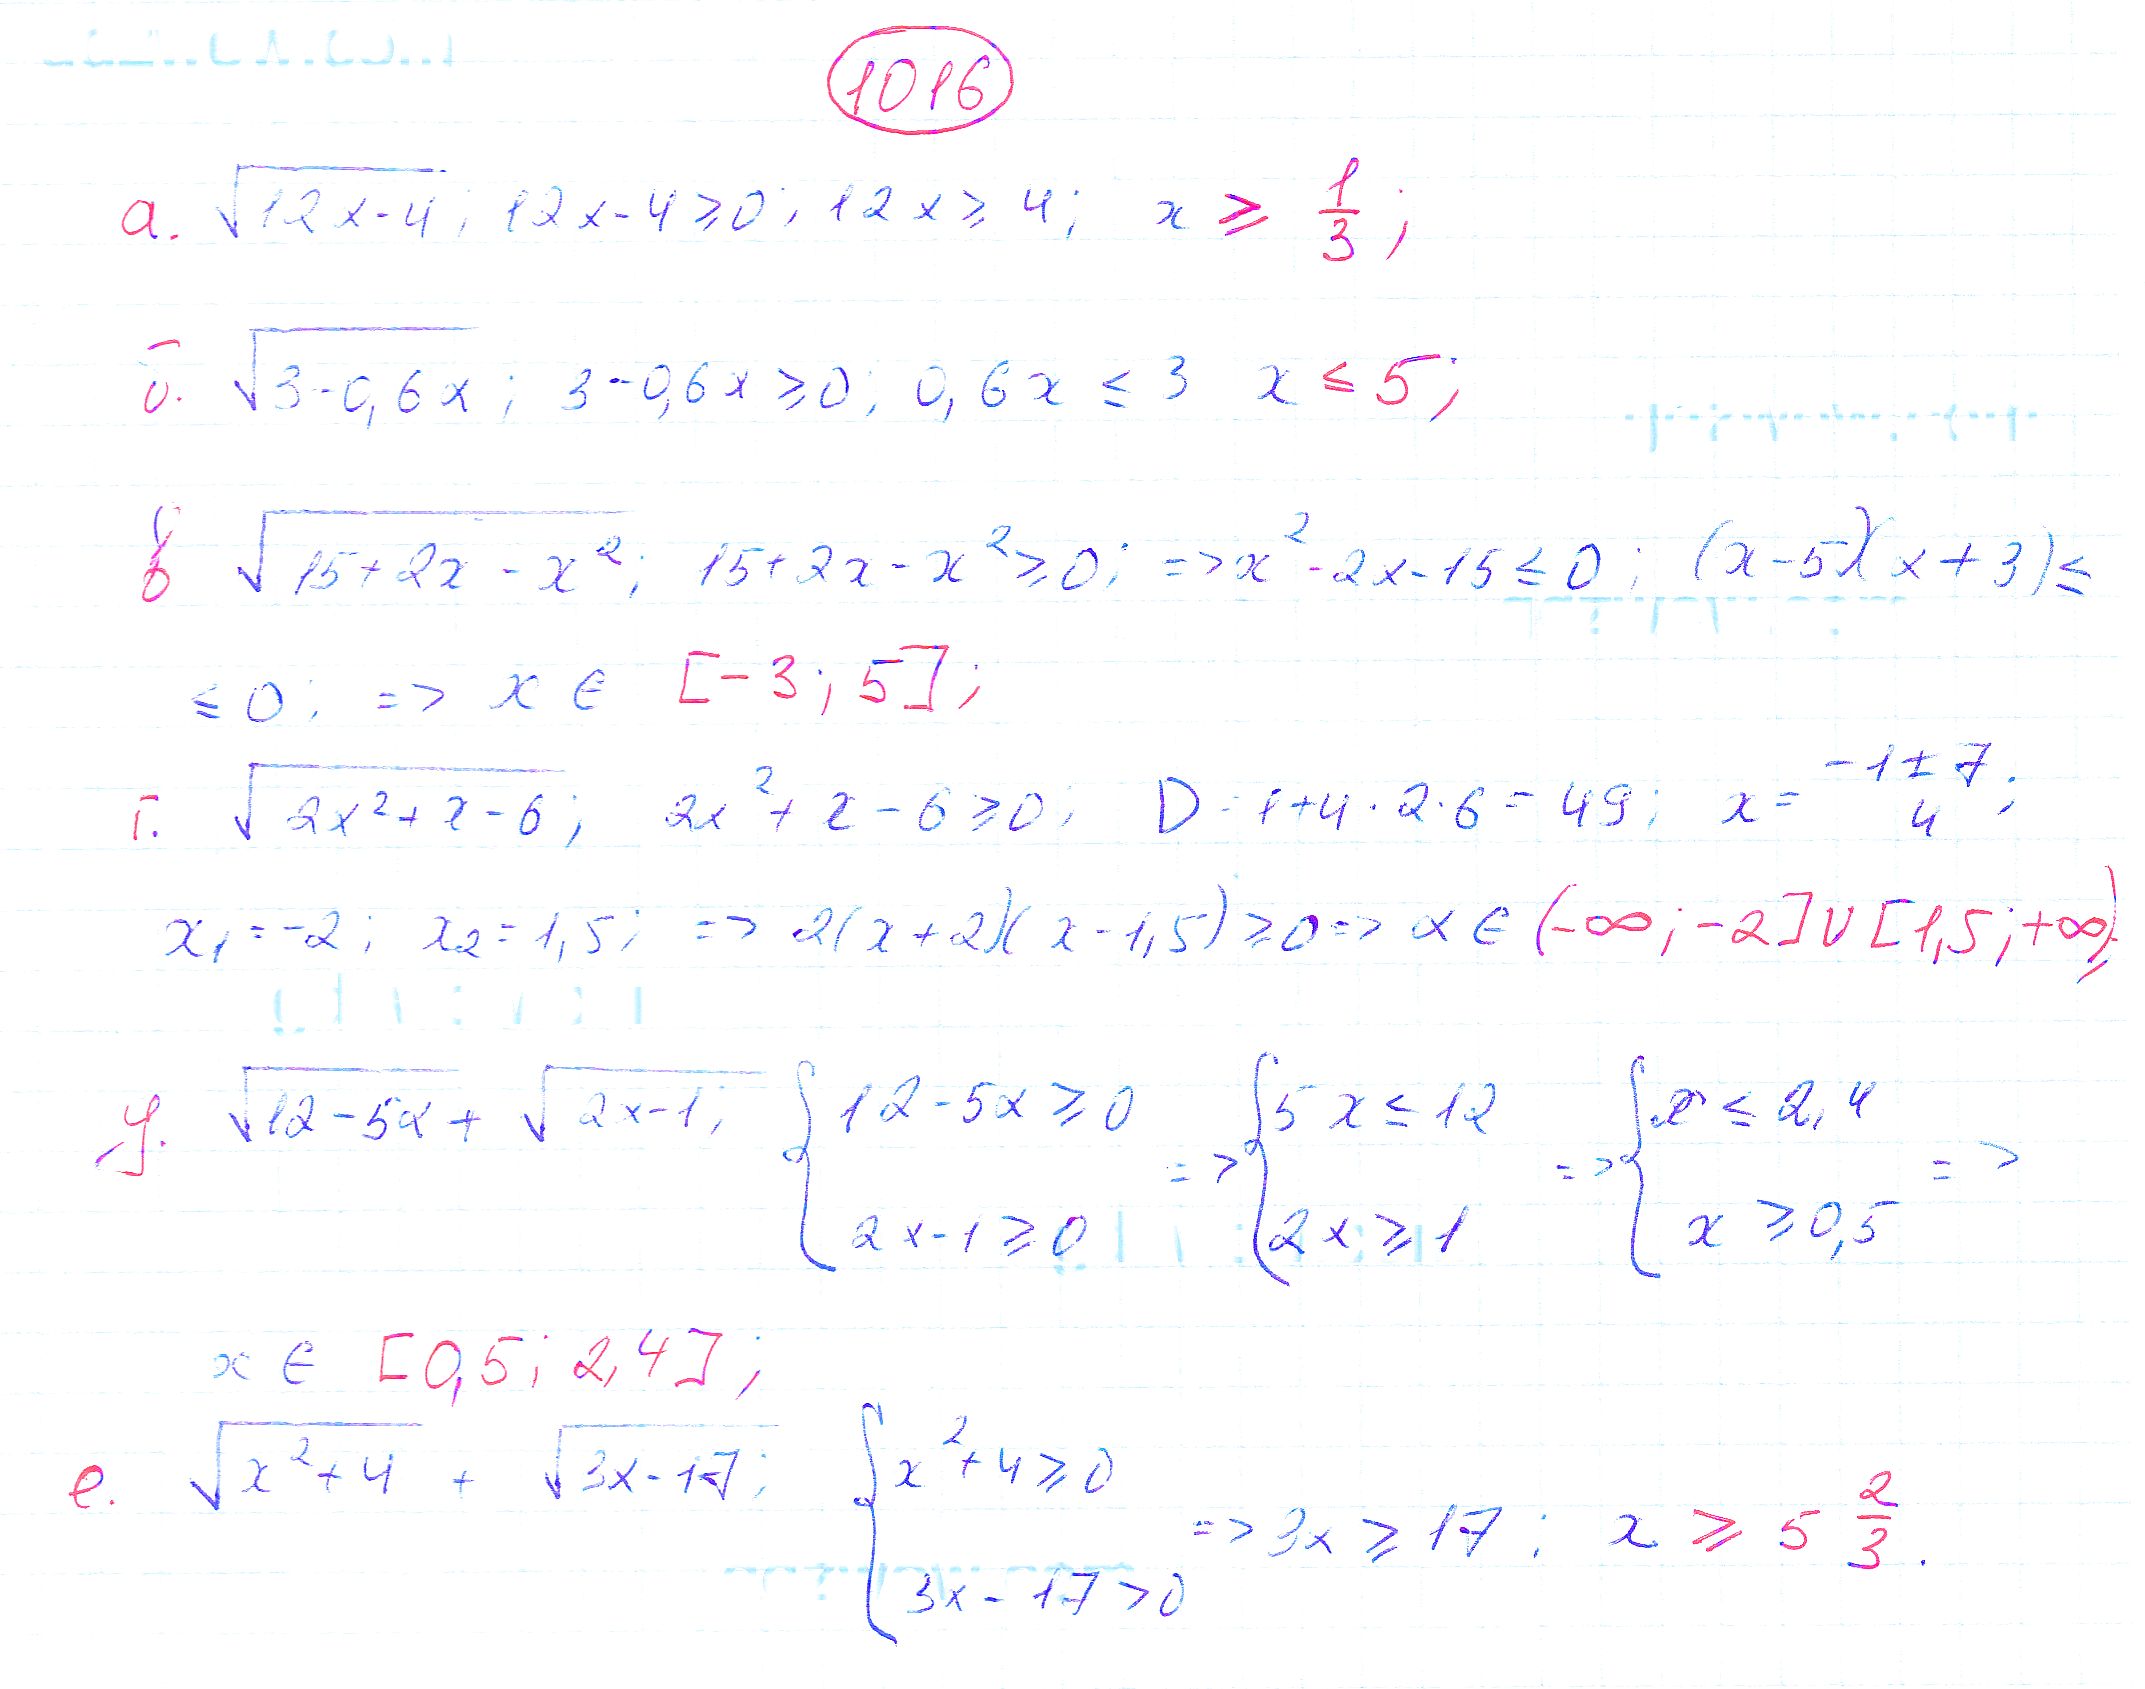 1016
а. √(12x-4); 12x-4≥0; 12x≥4; x ≥ 1/3;
б. √(3-0,6x); 3-0,6x≥0; 0,6x ≤ 3 x ≤ 5;
в √(15+2x-x²); 15+2x-x²≥0; => x²-2x-15≤0; (x-5)(x+3)≤
≤0; => x ∈ [-3; 5];
г. √(2x²+x-6); 2x²+x-6≥0; D=1+4·2·6=49; x= (-1±7)/4;
x₁=-2; x₂=1,5; => 2(x+2)(x-1,5)≥0=> x∈(-∞;-2]∪[1,5;+∞);
д. √(12-5x) + √(2x-1); { 12-5x≥0 => { 5x≤12 => { x≤2,4 =>
2x-1≥0 2x≥1 x≥0,5
x∈ [0,5; 2,4];
е. √(x²+4) + √(3x-17); { x²+4≥0 => 3x≥17; x ≥ 5 2/3.
3x-17>0